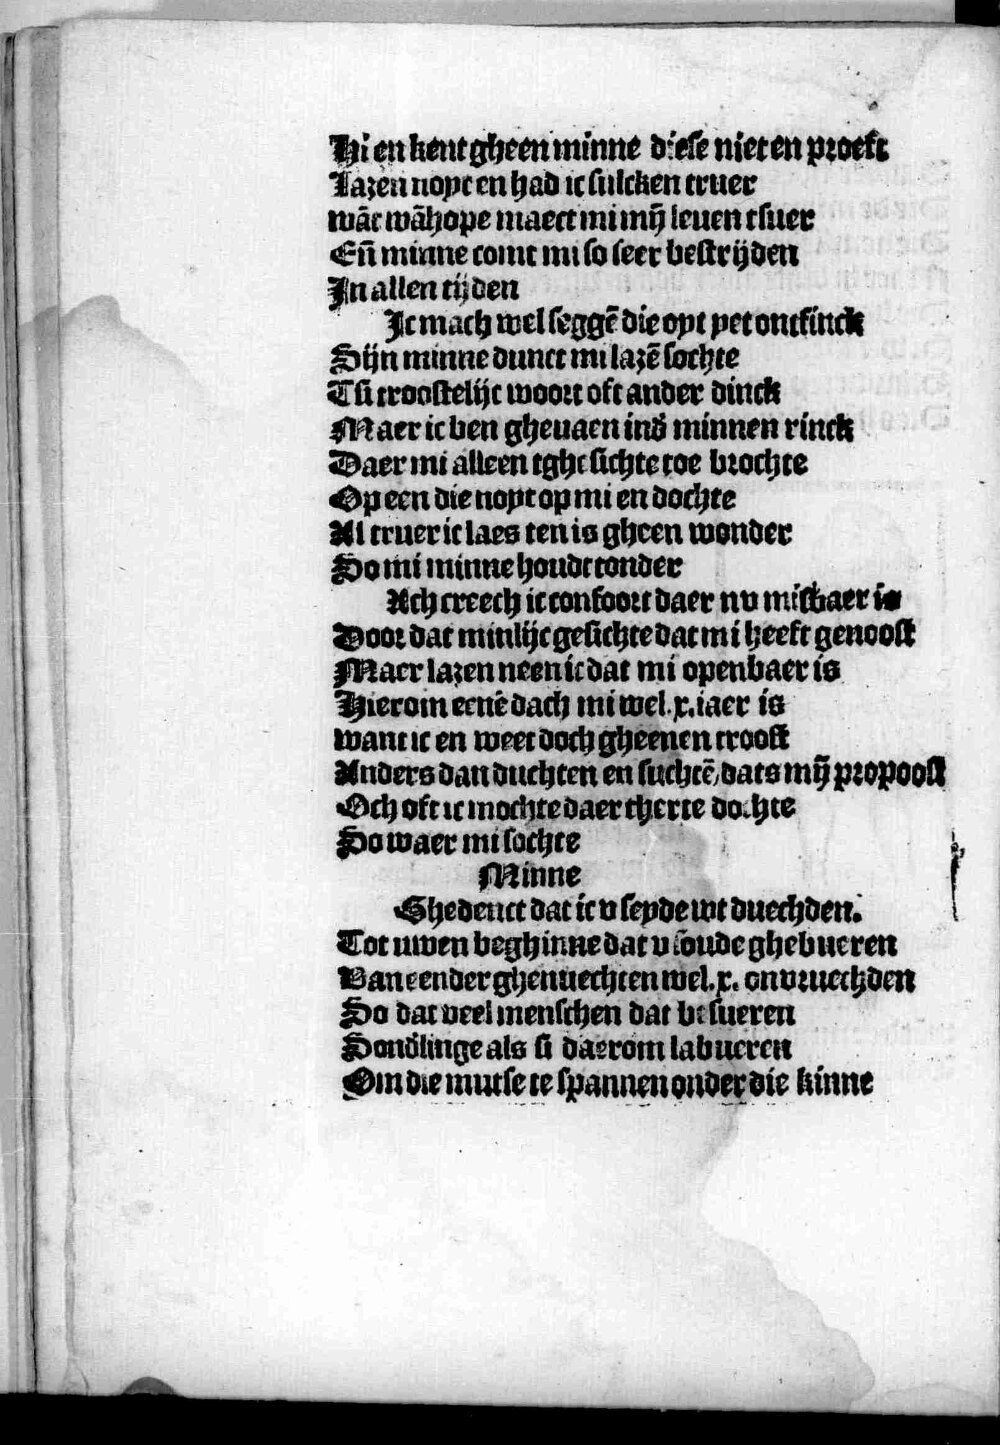 Hi en kent gheen minne diese niet en proeft
Lazen noyt en had ic sulcken truer
wāt wāhope maect mi mij̄ leuen tsuer
Eñ minne comt mi so seer bestrijden
In allen tijden
Ic mach wel seggē die oyt yet ontfinck
Sijn minne dunct mi lazē sochte
Tsi troostelijc woort oft ander dinck
Maer ic ben gheuaen inð minnen rinck
Daer mi alleen tghesichte toe brochte
Op een die noyt op mi en dochte
Al truer ic laes ten is gheen wonder
So mi minne houdt tonder
Ach creech ic confoort daer nv misbaer is
Door dat minlijc gesichte dat mi heeft genoost
Maer lazen neen ic dat mi openbaer is
Hierom eenē dach mi wel .x. iaer is
want ic en weet doch gheenen troost
Anders dan duchten en suchtē/ dats mij̄ propoost
Och oft ic mochte daer therte dochte
So waer mi sochte
Minne
Ghedenct dat ic v seyde wt duechden.
Tot uwen beghinne dat v soude ghebueren
Van eender ghenuechten wel .x. onvruechden
So dat veel menschen dat besueren
Sonðlinge als si daerom labueren
Om die mutse te spannen onder die kinne